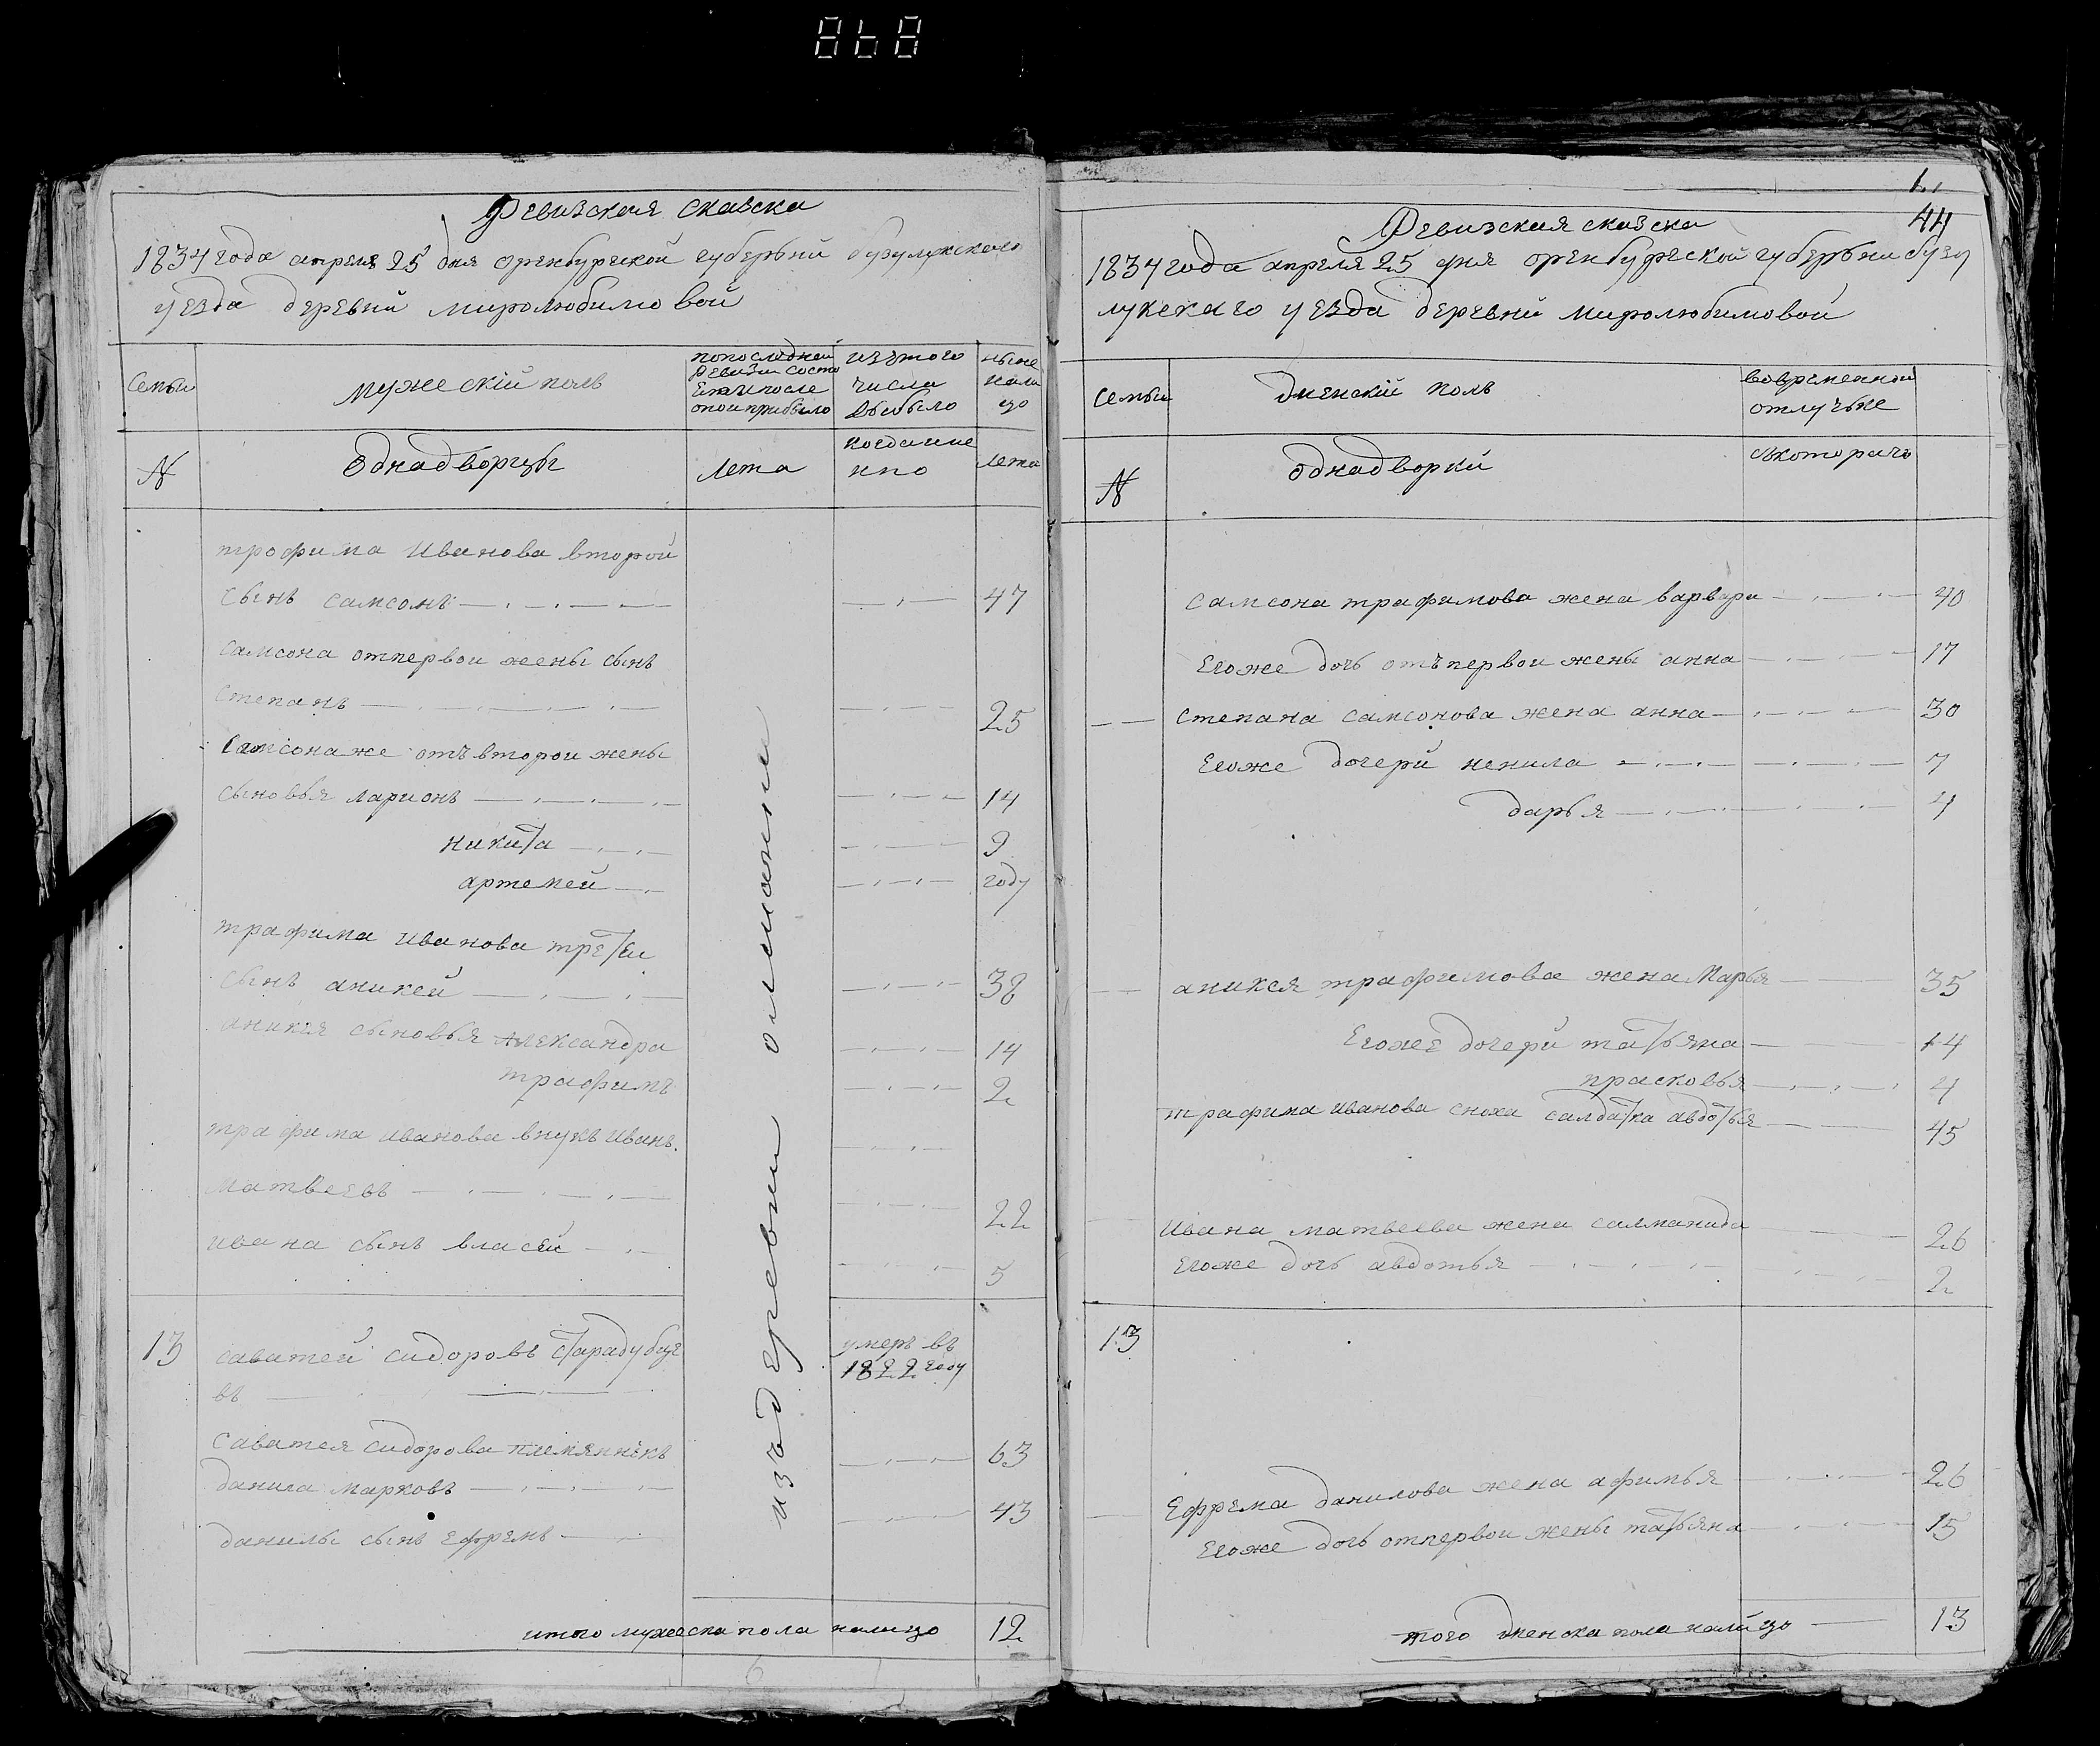 868
Ревизская сказска
1834 года апреля 25 дня оренбургской губерьний бузулукскаго
уезда деревни миролюбимовой
Семьи
мужескій полъ
попоследней
ревизи состо
ит и после
оной прибыло
изэтого
числа
выбыло
ныне
нали
цо
№
Однадворцы
лета
когда име
нно
лета
трофима Иванова второй
сынъ самсонъ 47
Самсона отпервои жены сынъ
Степанъ 25
Самсонаже отъвторои жены
сыновья ларионъ 14
никита 9
артемей году
трафима иванова третеи
сынъ аникей 38
аникея сыновья Александра 14
трафимъ 2
трафима иванова внукъ иванъ
матвеевъ 22
ивана сынъ власей 5
изъ деревни
13 саватей сидоровъ старадубце
въ
умеръ въ
1822 году
Саватея сидорова племянникъ
данила марковъ 63
данилы сынъ ефремъ 43
итого мужеска пола налицо 12
6
44
Ревизская сказска
1834 года апреля 25 дня оренбургской губерьни бузу
лукскаго уезда деревни миролюбимовой
Семьи
женскій полъ
вовременной
отлучьке
№
однадворки
съкотораго
самсона трафимова жена варвара 40
Егоже дочь отъпервои жены анна 17
Степана самсонова жена анна 30
Егоже дочери ненила 7
дарья 4
аникея трафимова жена Марья 35
Егоже дочери татьяна 14
прасковья 4
трафима иванова сноха салдатка авдотья 45
Ивана матвеева жена саламанида 26
Егоже дочь авдотья 2
13
Ефрема данилова жена афимья 26
Егоже дочь отпервои жены татьяна 15
того женска пола налицо 13